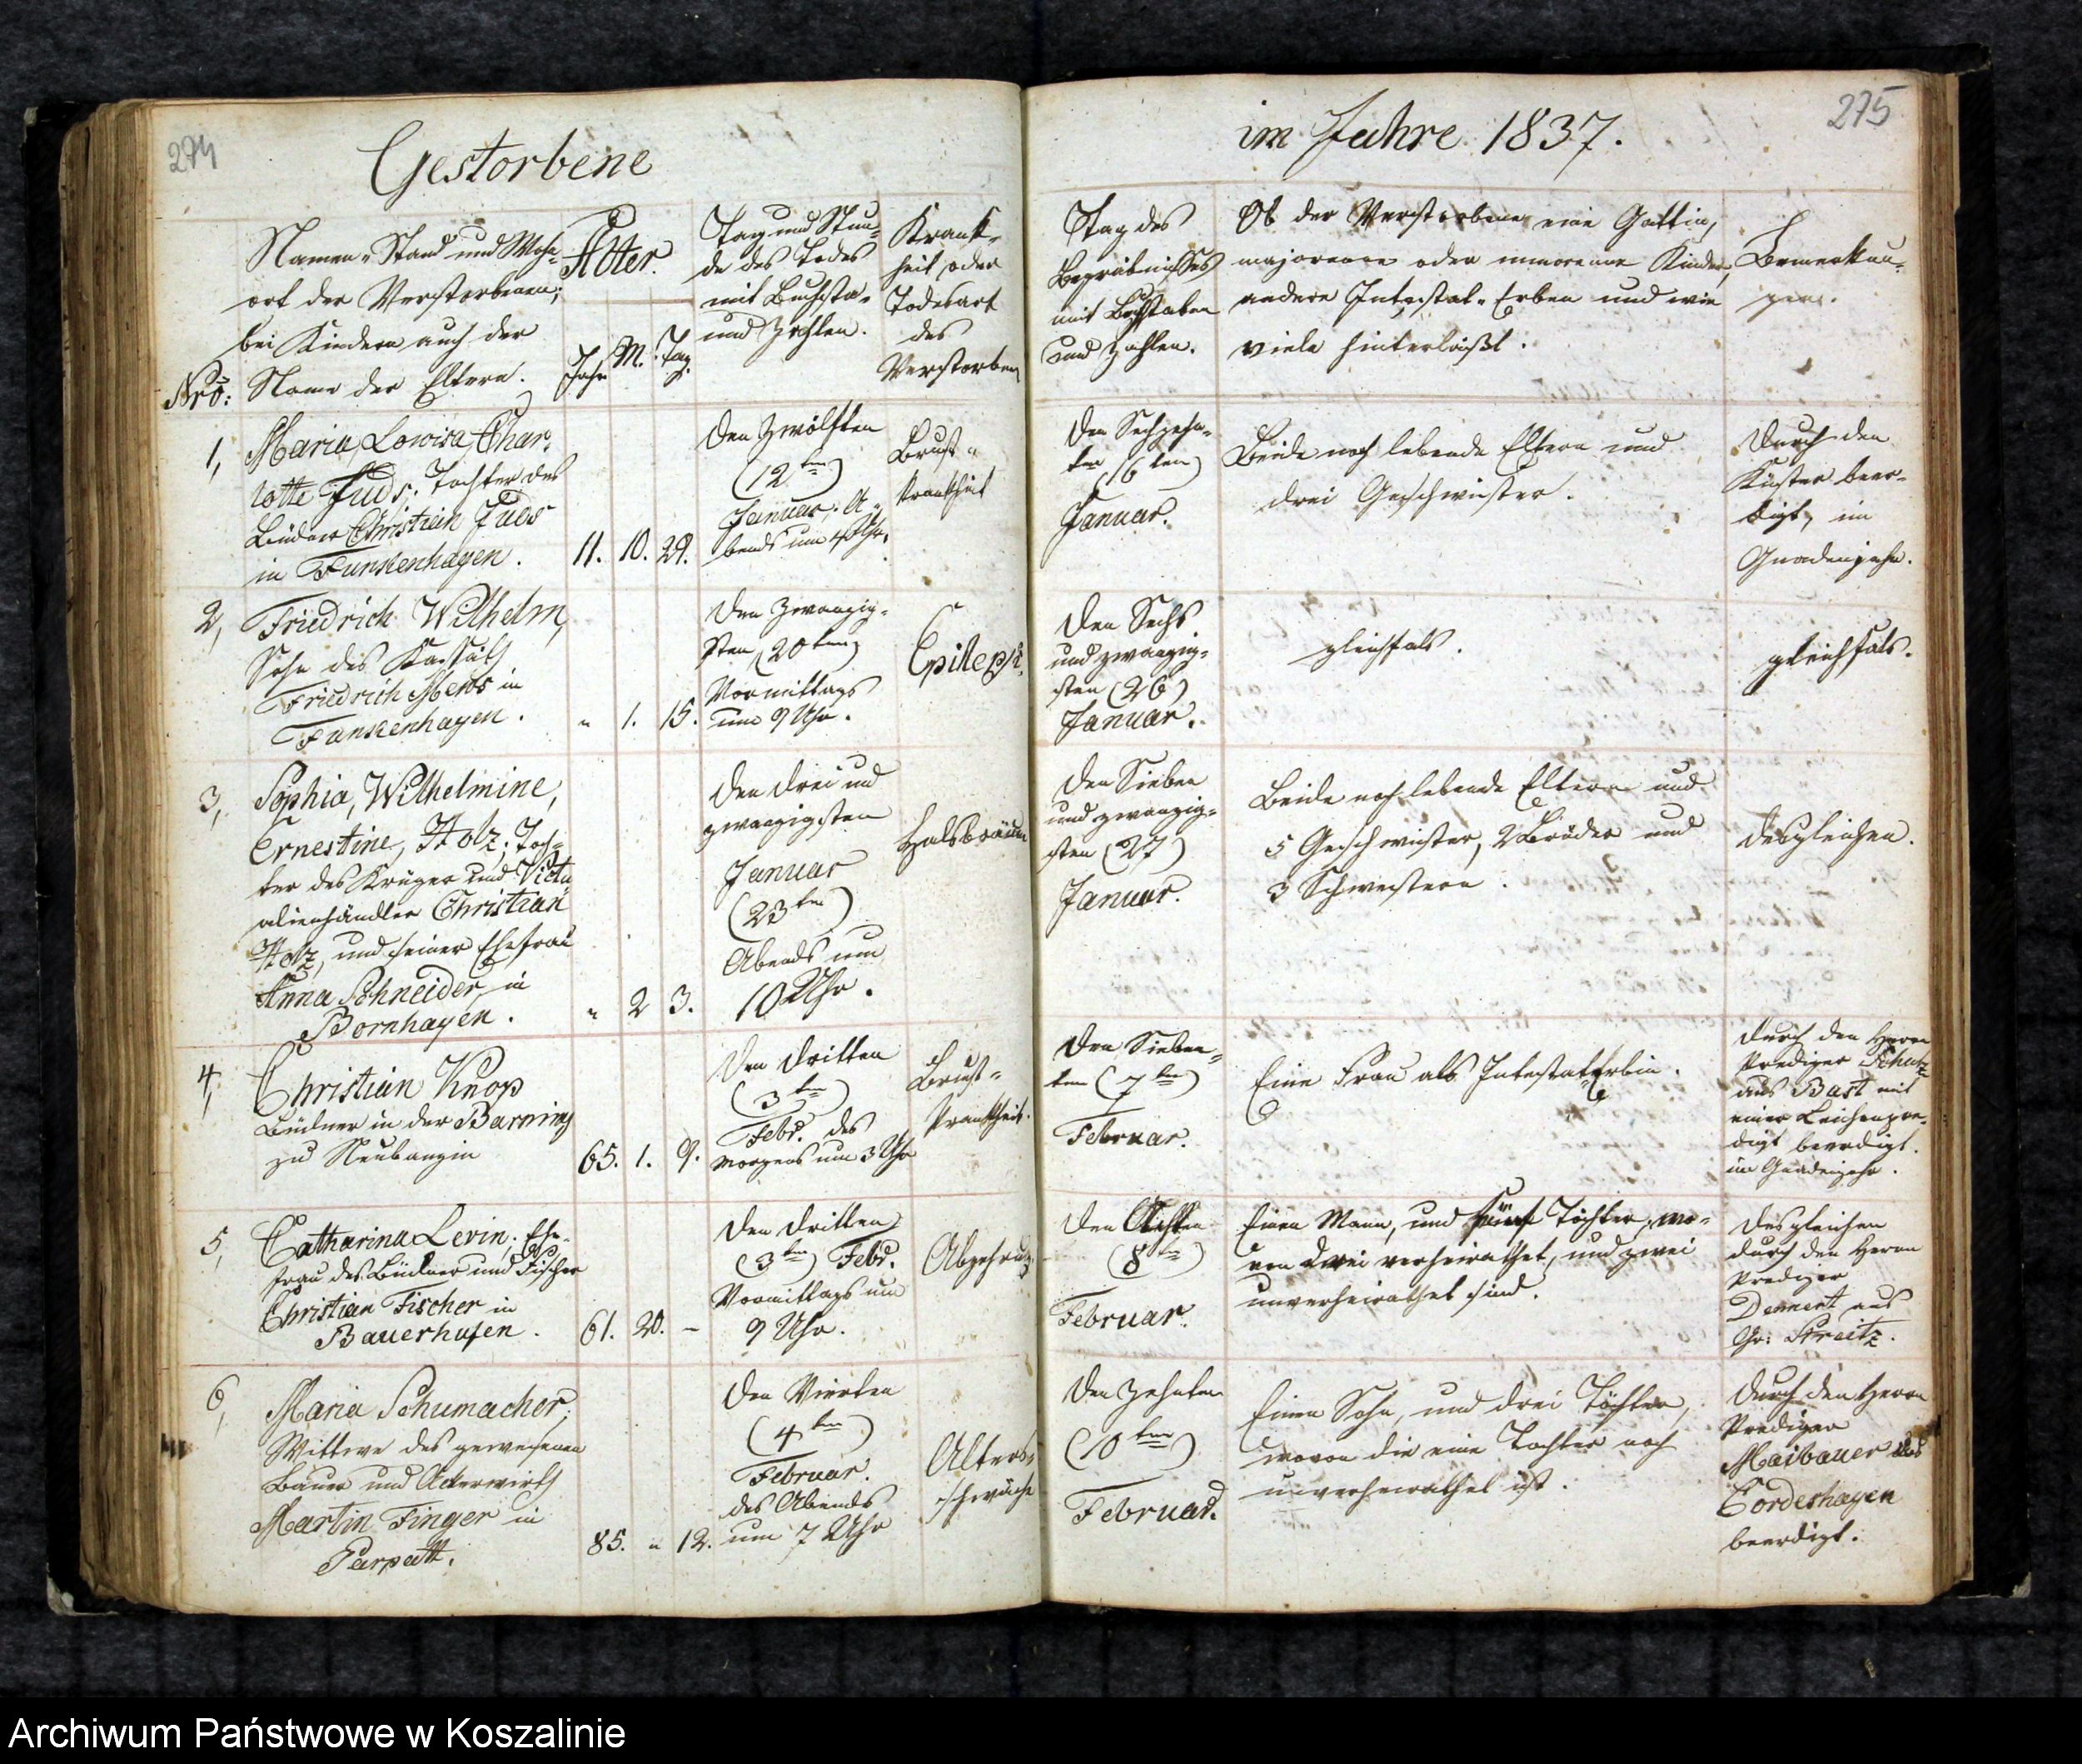 274
Gestorbene
Namen, Stand und Wohn-
ort der Verstorbenen;
bei Kindern auch der
Nro: Name der Eltern.
Alter.
Jahr M. Tag.
Tag und Stun-
de des Todes
mit Buchsta-
und Zahlen.
Krank-
heit oder
Todesart
des
Verstorben
1, Maria, Lowisa, Char-
lotte Fuds; Tochter des
Büdner Christian Fuds
in Funkenhagen.
11. 10. 29.
den zwölften
(12ten)
Januar, A-
bends um 4 Uhr.
Brust-
krankheit
2, Friedrich Wilhelm,
Sohn des Kossäth
Friedrich Mews in
Funkenhagen.
" 1. 15.
den zwanzig-
sten (20ten)
Vormittags
um 9 Uhr.
Epileps.
3, Sophia, Wilhelmine,
Ernestine, Holz; Toch-
ter des Krüger und Victu
alienhändler Christian
Holz, und seiner Ehefrau
Anna Schneider, in
Bornhagen.
" 2 3.
den drei und
zwanzigsten
Januar
(23ten)
Abends um
10 Uhr.
Halsbräune
4, Christian Knop
Büdner in der Barning
zu Neubanzin
65. 1. 9.
den dritten
(3ten)
Febr. des
Morgens um 3 Uhr
Brust-
krankheit.
5, Catharina Levin. Ehe-
frau des Büdner und Fischer
Christian Fischer in
Bauerhufen.
61. 20. –
den dritten
(3ten) Febr.
Vormittags um
9 Uhr.
Abzehrung
6, Maria Schumacher,
Wittwe des gewesenen
Bauer und Ackerwirth
Martin Finger in
Parpatt.
85. " 12.
den Vierten
(4ten)
Februar.
des Abends
um 7 Uhr
Alters-
schwäche
275
im Jahre 1837.
Tag des
Begräbnisses
mit Buchstaben
und Zahlen.
Ob der Verstorbene eine Gattin,
majorenne oder minorenne Kinder,
andere Intestat-Erben und wie
viele hinterläßt.
Bemerkun-
gen.
den Sechzehn-
ten (16ten)
Januar.
Beide noch lebende Eltern und
drei Geschwister.
Durch den
Küster beer-
digt, im
Gnadenjahr.
den Sechs
und zwanzig-
sten (26)
Januar.
gleichfals.
gleichfals.
den Sieben
und zwanzig-
sten (27)
Januar.
Beide noch lebende Eltern und
5 Geschwister, 2 Brüder und
3 Schwestern.
desgleichen.
den Sieben-
ten (7ten)
Februar.
Eine Frau als Intestaterbin.
durch den Herrn
Prediger Schulz
aus Bast mit
einer Leichenpre-
digt beerdigt.
im Gnadenjahr.
den Achten
(8ten)
Februar.
Einen Mann, und fünf Töchter, wo-
von drei verheirathet, und zwei
unverheirathet sind.
desgleichen
durch den Herrn
Prediger
Dennert aus
Gr: Streitz.
den zehnten
(10ten)
Februar.
Einen Sohn, und drei Töchter,
wovon die eine Tochter noch
unverheirathet ist.
durch den Herrn
Prediger
Maibauer aus
Cordeshagen
beerdigt.
Archiwum Państwowe w Koszalinie